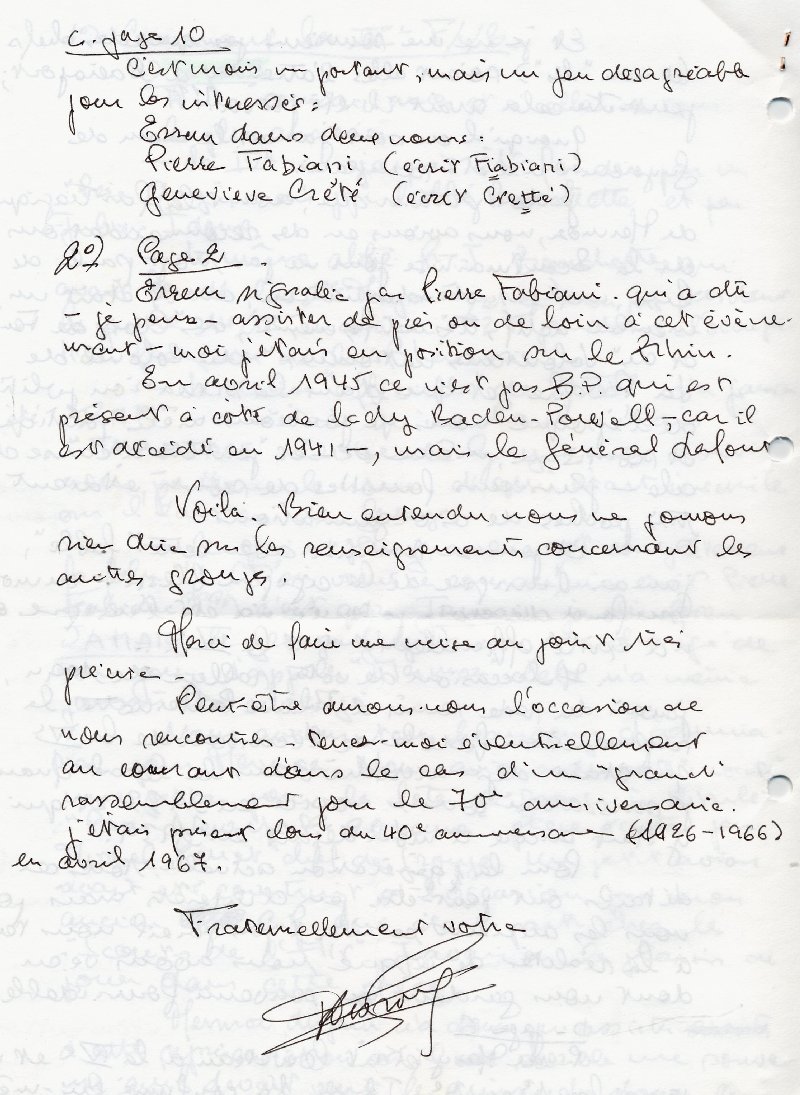 C. page 10
C'est moins important, mais un peu désagréable
pour les intéressés :
Erreur dans deux noms.
Pierre Fabiani (écrit Fiabiani)
Geneviève Crété (écrit Cretté)
2°) Page 2.
Erreur signalée par Pierre Fabiani. qui a dû
- je pense - assister de près ou de loin à cet évène-
ment - moi j'étais en position sur le Rhin.
En avril 1945 ce n'est pas B.P. qui est
présent à côté de lady Baden-Powell -, car il
est décédé en 1941 -, mais le général Lafont
Voilà. Bien entendu nous ne pouvons
rien dire sur les renseignements concernant les
autres groupes.
Merci de faire une mise au point très
précise -
Peut-être aurons-nous l'occasion de
nous rencontrer - tenez-moi éventuellement
au courant dans le cas d'un grand
rassemblement pour le 70e anniversaire.
j'étais présent lors du 40e anniversaire (1926-1966)
en avril 1967.
Fraternellement votre